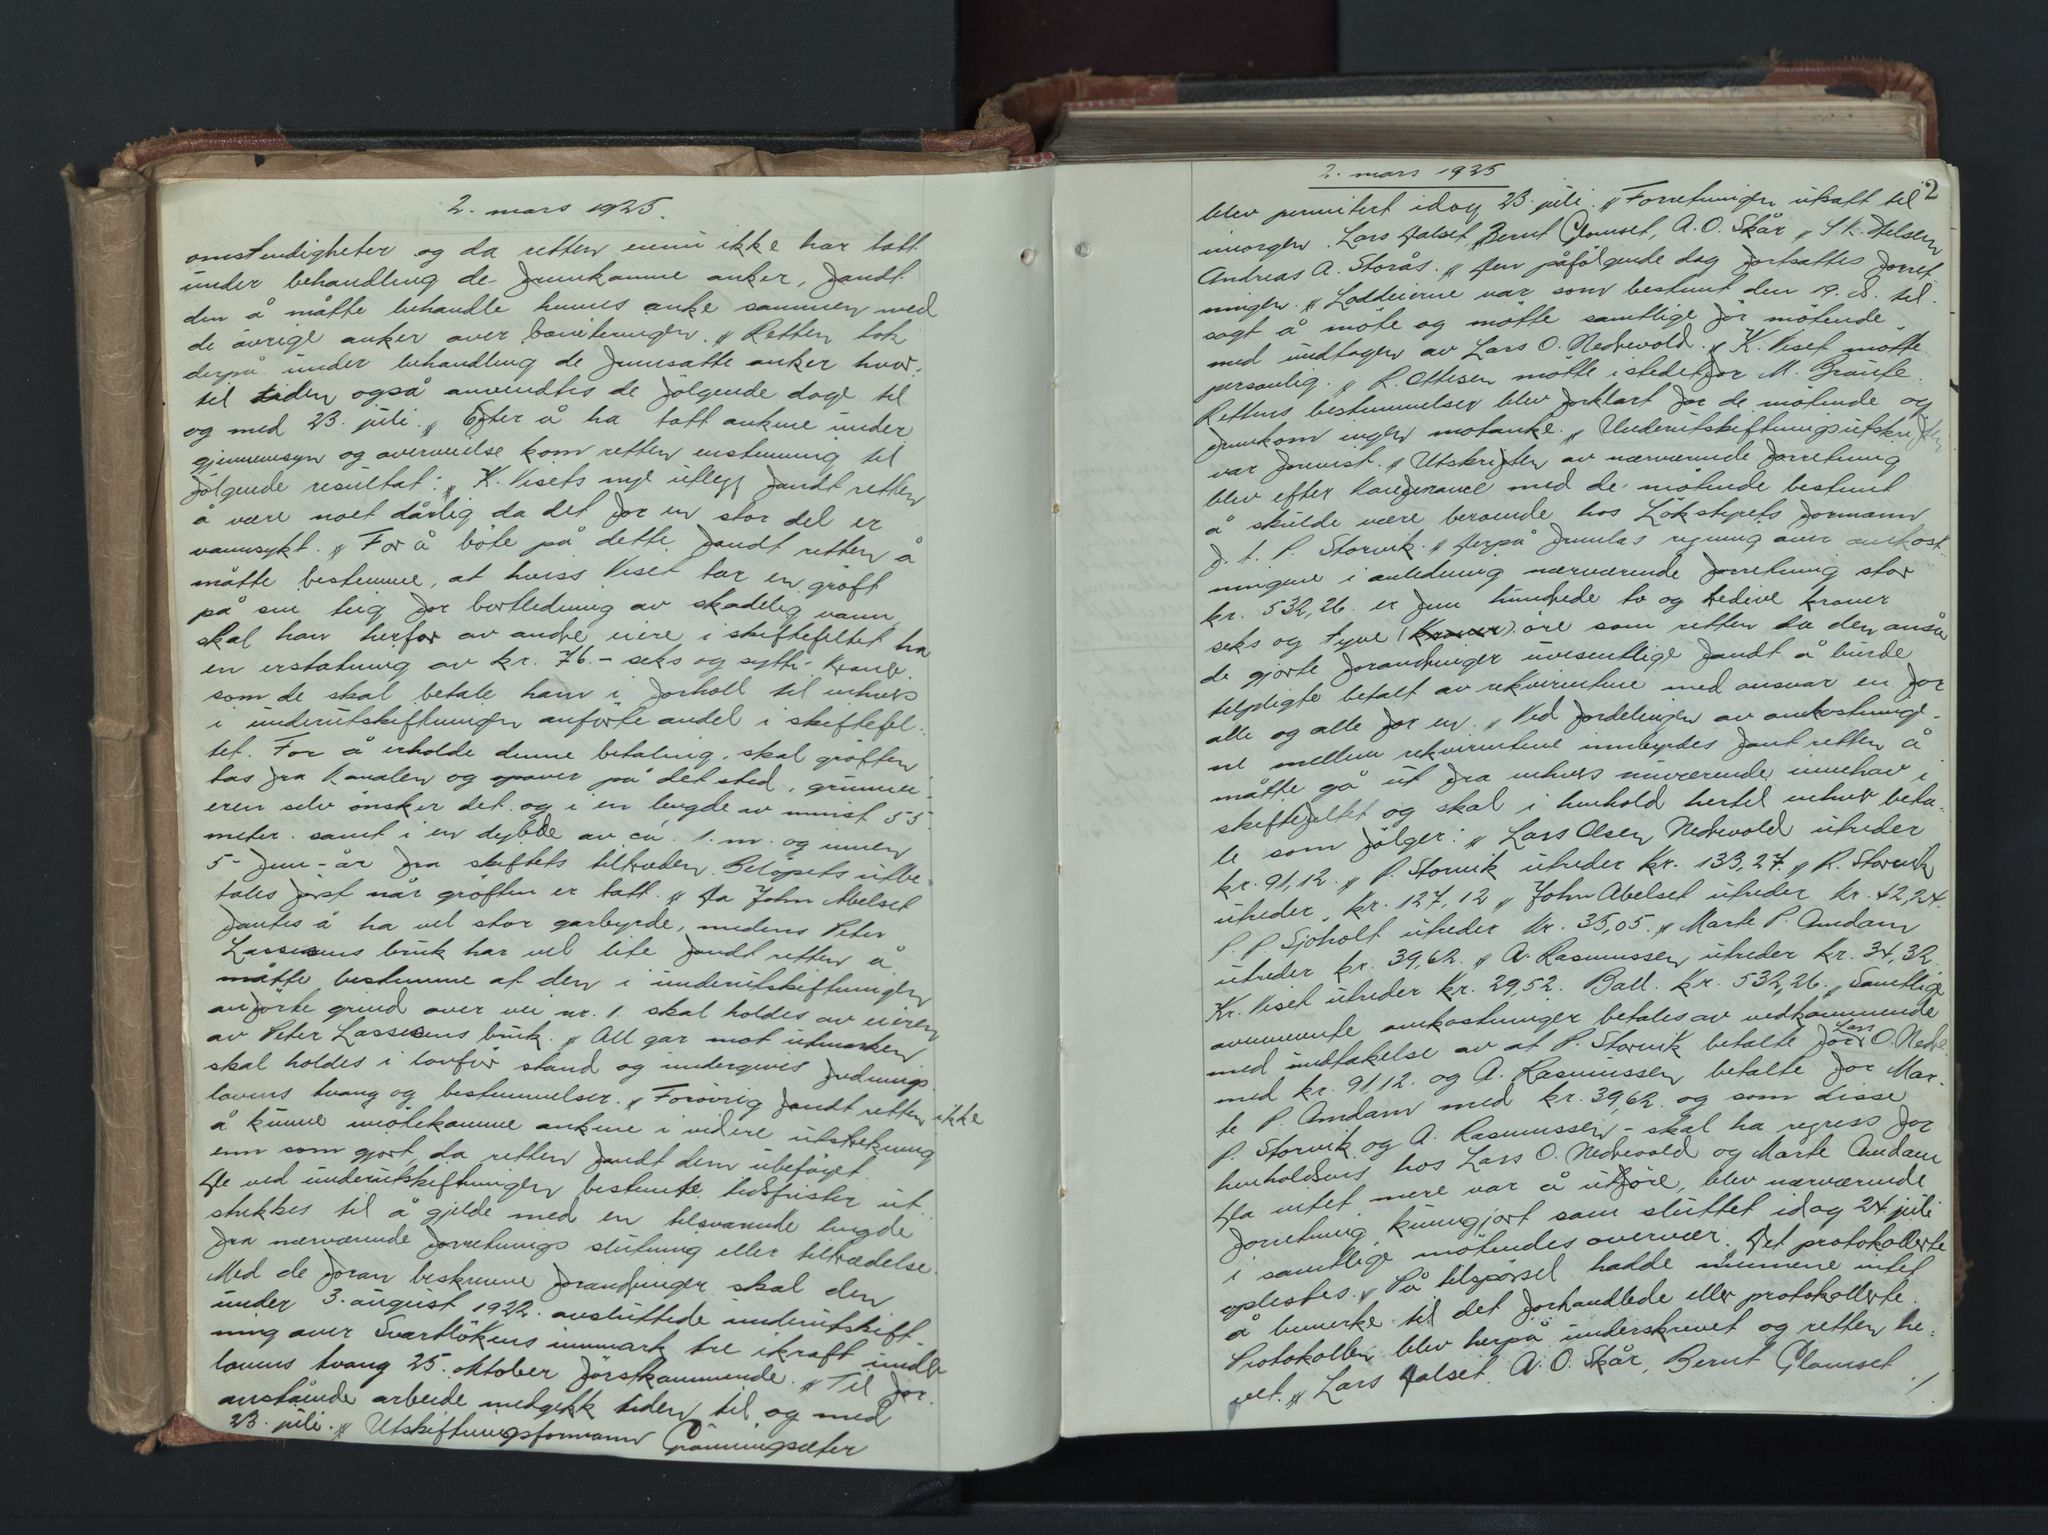 2. mars 1925.
omstendigheter og da retten ennu ikke har tatt
under behandling de fremkomne anker, fandt
den å måtte behandle hennes anke sammen med
de øvrige anker over boniteringen. „ Retten tok
derpå under behandling de fremsatte anker hvor-
til tiden også anvendtes de følgende dage til
og med 23. juli. „ Efter å ha tatt ankene under
gjennemsyn og overveielse kom retten enstemmig til
følgende resultat: „ K. Visets nye utlegg fandt retten
å være noet dårlig da det for en stor del er
vannsykt. „ For å bøte på dette fandt retten å
måtte bestemme, at hviss Viset tar en grøft
på sin teig for bortledning av skadelig vann
skal han herfor av andre eiere i skiftefeltet ha
en erstatning av kr. 76.- seks og sytti- kroner.
som de skal betale ham i forholl til enhvers
i underutskiftningen anførte andel i skiftefel-
tet. For å erholde denne betaling, skal grøften
tas fra kanalen og opover på det sted, grunnei-
eren selv ønsker det og i en lengde av minst 55
meter. samt i en dybde av ca. 1. m. og innen
5- fem- år fra skiftets tiltræden. Beløpets utbe-
tales først når grøften er tatt. „ Da John Abelset
fantes å ha vel stor garbyrde, medens Peter
Lassesens bruk har vel lite fandt retten å
måtte bestemme at den i underutskiftningen
anførte grind over vei nr. 1. skal holdes av eieren
av Peter Lassesens bruk. „ All gar mot utmarken
skal holdes i lovfør stand og undergives frednings-
lovens tvang og bestemmelser. „ Forøvrig fandt retten ikke
å kunne imøtekomme ankene i videre utstrekning
enn som gjort, da retten fandt dem ubeføyet.
De ved underutskiftningen bestemte tidsfrister ut-
strekkes til å gjelde med en tilsvarende lengde
fra nærværende forretnings slutning eller tiltrædelse.
Med de foran beskrevne forandringer skal den
under 3. august 1922. avsluttede underutskift-
ning over Svartløkens innmark tre i kraft under
lovens tvang 25. oktober førstkommende. „ Til for-
anstående arbeide medgikk tiden til og med
23. juli. „ Utskiftningsformann Grønningsæter
2. mars 1925
2
blev permitert idag 23. juli. „ Forretningen utsatt til
imorgen. Lars Dalset, Bernt Glomset, A. O. Skår „ S. K. Helsem
Andreas A. Storås. „ Den påfølgende dag fortsattes forret-
ningen. „ Loddeierne var som bestemt den 19. d. til-
sagt å møte og møtte samtlige før møtende
med undtagen av Lars O. Nedrevold. „ K. Viset møtte
personlig. „ R. Ottesen møtte istedetfor M. Braute.
Rettens bestemmelser blev forklart for de møtende og
fremkom ingen motanke. „ Underutskiftningsutskriften
var forevist. „ Utskriften av nærværende forretning
blev efter konferance med de møtende bestemt
å skulde være beroende hos Løkstyrets formann
f. t. P. Storvik. „ Derpå fremlas regning over omkost-
ningene i anledning nærværende forretning stor
kr. 532,26. er fem hundrede to og tredeve kroner
seks og tyve (kroner) øre som retten da den anså
de gjorte forandringer uvesentlige fandt å burde
tilpligte betalt av rekvirentene med ansvar en for
alle og alle for en. „ Ved fordelingen av omkostninge-
ne mellem rekvirentene innbyrdes fant retten å
måtte gå ut fra enhvers nuværende innehav i
skiftefeltet og skal i henhold hertil enhver beta-
le som følger: „ Lars Olsen Nedrevold utreder
kr. 91,12. „ P. Storvik utreder kr. 133,27 „ R. Storvik
utreder kr. 127,12 „ John Abelset utreder kr. 42,24.
P. P. Sjøholt utreder kr. 35,05. „ Marte P. Amdam
utreder kr. 39,62. „ A. Rasmussen utreder kr. 34,32.
Kr. Viset utreder kr. 29,52. Ball. kr. 532,26. „ Samtlige
ovennevnte omkostninger betales av vedkommende
med undtakelse av at P. Storvik betalte for Lars O. Nedre.
med kr. 91,12. og A. Rasmussen betalte for Mar-
te P. Amdam med kr. 39,62. og som disse
P. Storvik og A. Rasmussen - skal ha regress for
henholdsvis hos Lars O. Nedrevold og Marte Amdam
Da intet mere var å utføre, blev nærværende
forretning kunngjort som sluttet idag 24. juli
i samtlige møtendes overvær. Det protokollerte
oplestes. „ På tilspørsel hadde ingen intet
å bemerke til det forhandlede eller protokollerte.
Protokollen blev herpå underskrevet og retten he-
vet. „ Lars Dalset. A. O. Skår, Bernt Glomset ./